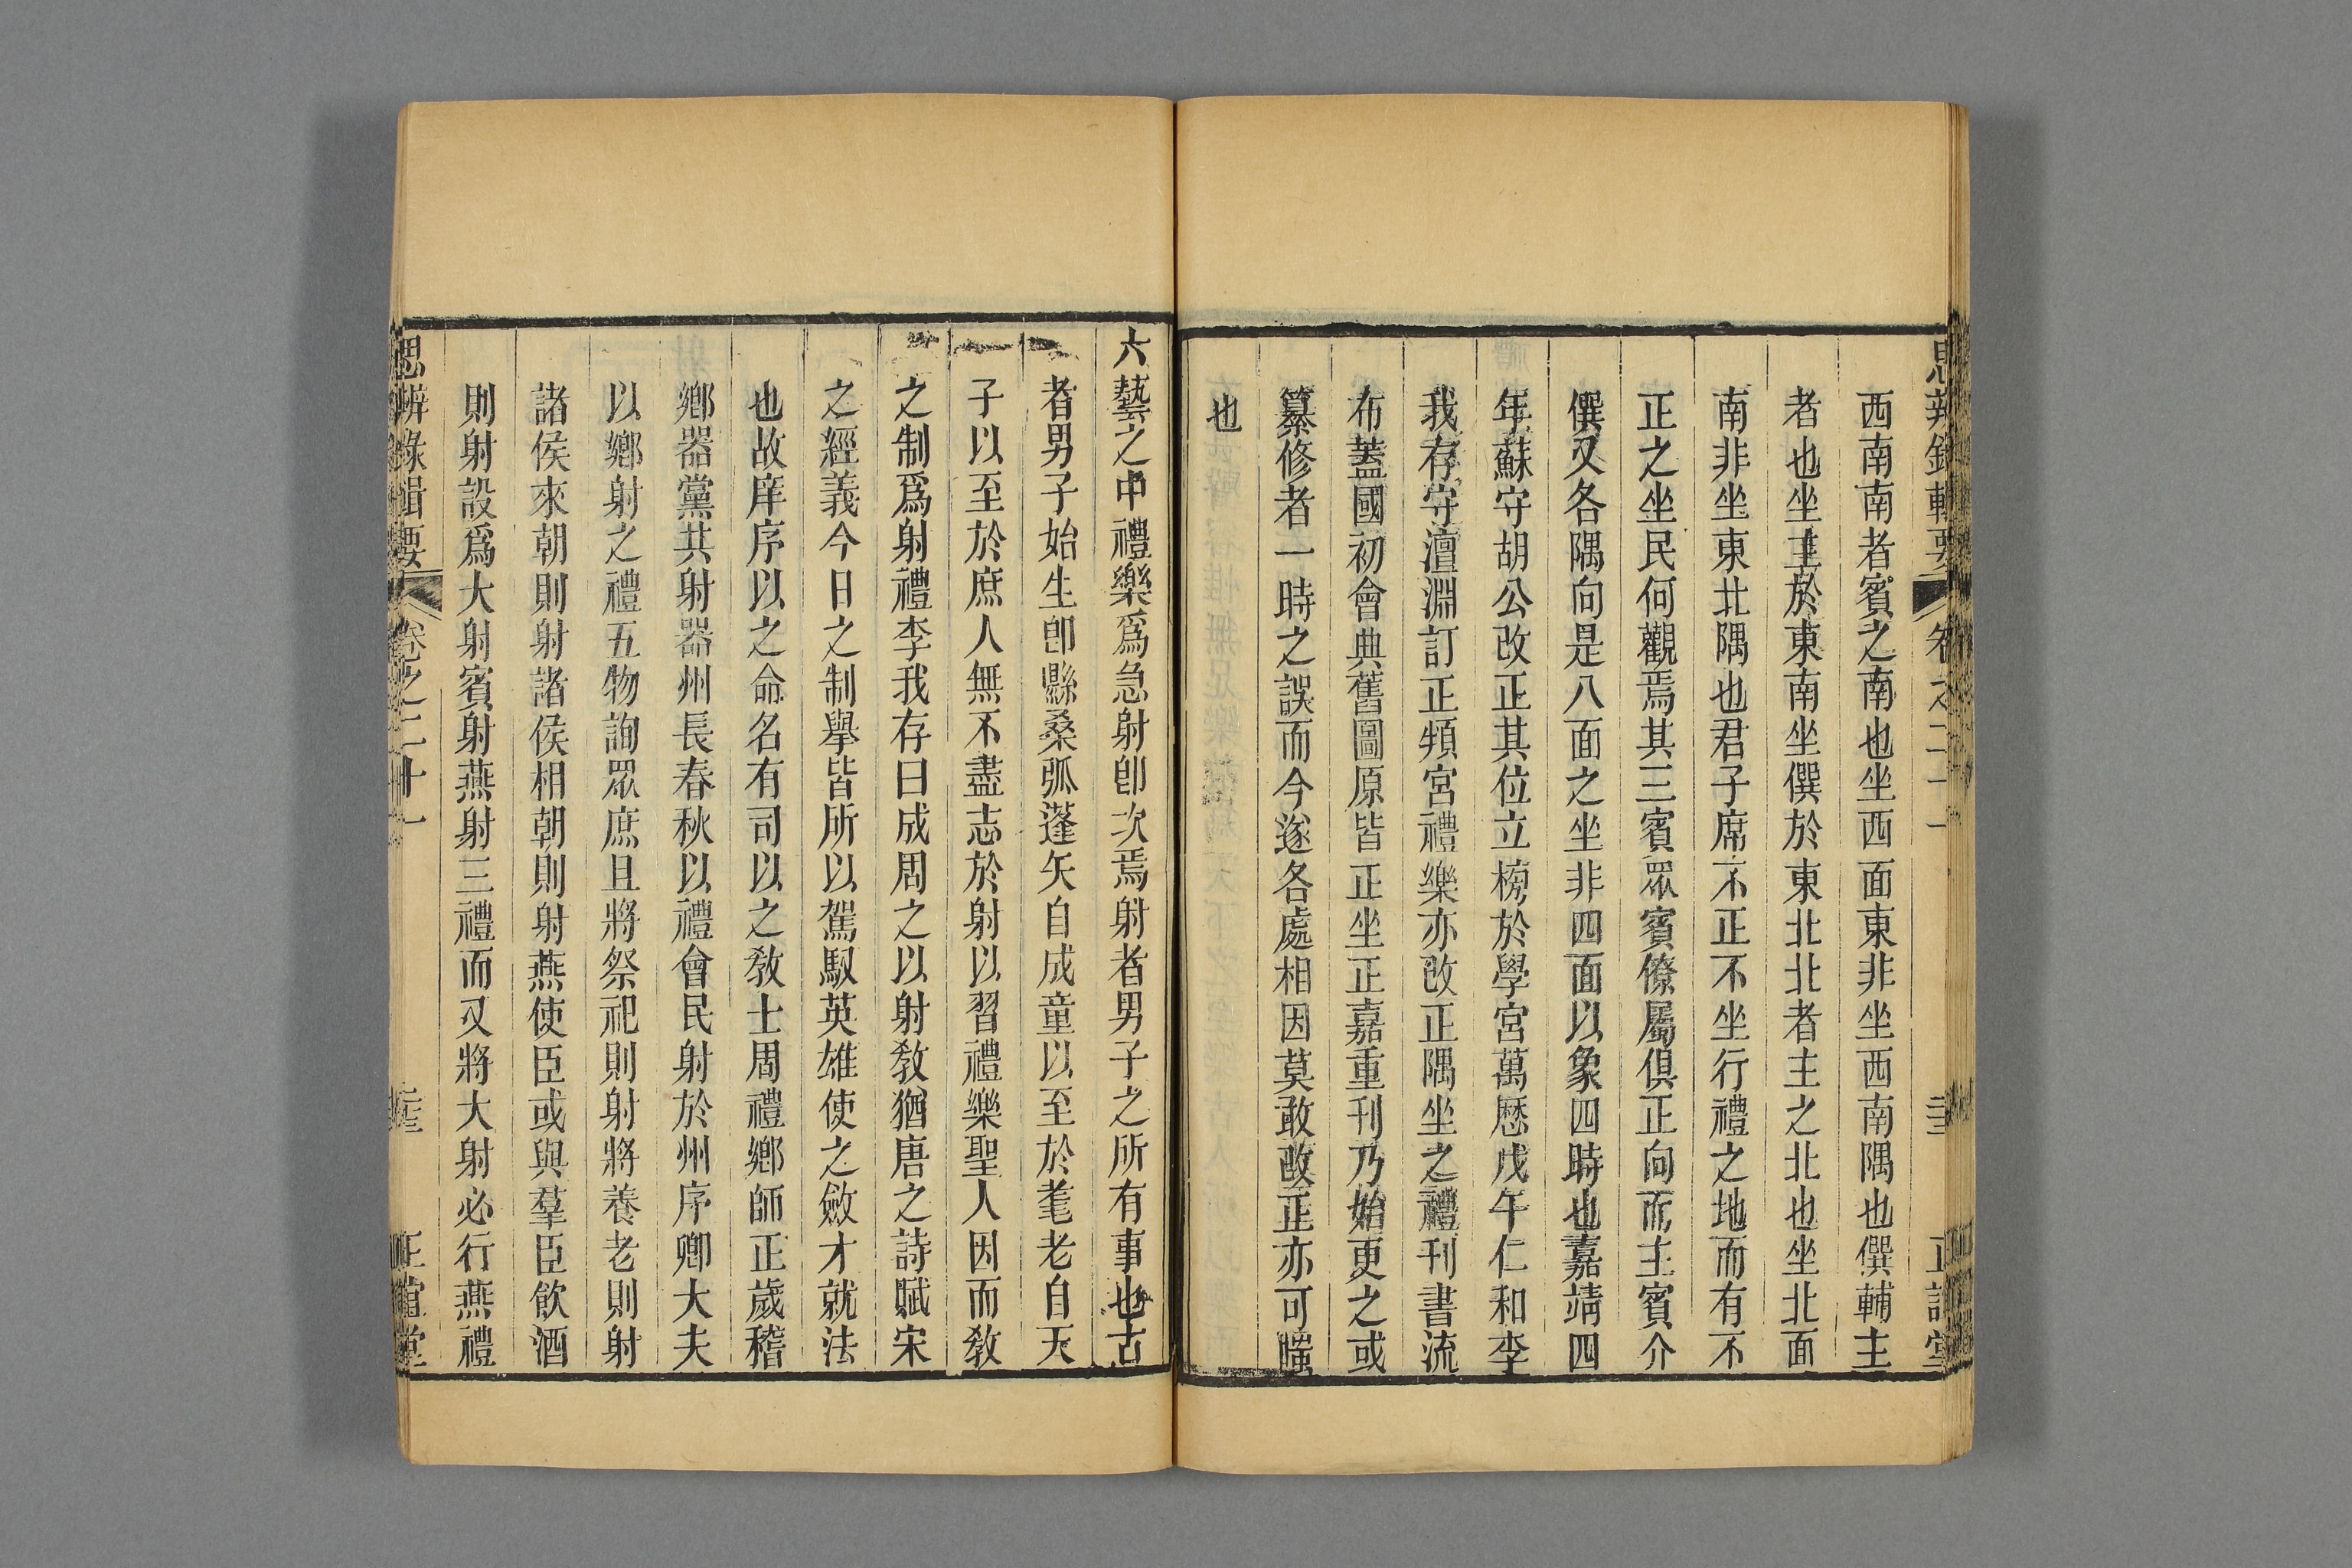 思辨錄輯要 卷之二十一 正誼堂
西南南者賓之南也坐西面東非坐西南隅也僎輔主
者也坐主於東南坐僎於東北北者主之北也坐北面
南非坐東北隅也君子席不正不坐行禮之地而有不
正之坐民何觀焉其三賓眾賓僚屬俱正向而主賓介
僎又各隅向是八面之坐非四面以象四時也嘉靖四
年蘇守胡公改正其位立榜於學宮萬歷戊午仁和李
我存守澶淵訂正頖宮禮樂亦改正隅坐之禮刊書流
布蓋國初會典舊圖原皆正坐正嘉重刊乃始更之或
纂修者一時之誤而今遂各處相因莫敢改正亦可嗤
也
六藝之中禮樂爲急射卽次焉射者男子之所有事也古
者男子始生卽縣桑弧蓬矢自成童以至於耄老自天
子以至於庶人無不盡志於射以習禮樂聖人因而教
之制爲射禮李我存曰成周之以射教猶唐之詩賦宋
之經義今日之制舉皆所以駕馭英雄使之斂才就法
也故庠序以之命名有司以之教士周禮鄉師正歲稽
鄉器黨共射器州長春秋以禮會民射於州序卿大夫
以鄉射之禮五物詢眾庶且將祭祀則射將養老則射
諸侯來朝則射諸侯相朝則射燕使臣或與羣臣飲酒
則射設爲大射賓射燕射三禮而又將大射必行燕禮
思辨錄輯要 卷之二十一 正誼堂